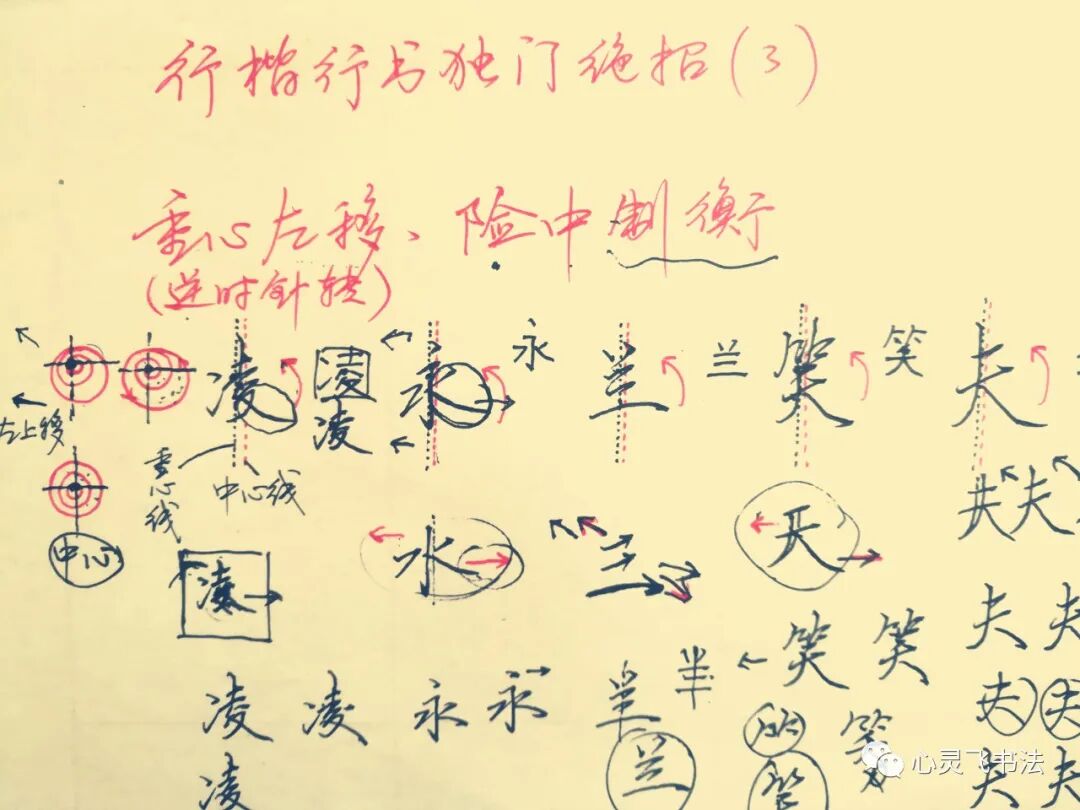 行楷行书独门绝招(3)
重心左移、险中制衡
(逆时针转)
凌 凌 永 永 兰 兰 笑 笑 夫
凌
左上移
重心线 中心线
夫 夫
中心
凌 水 三 天
夫 夫
笑 笑
凌 凌 永 永 半 夫 夫
兰 笑
凌 夫 夫
心灵飞书法